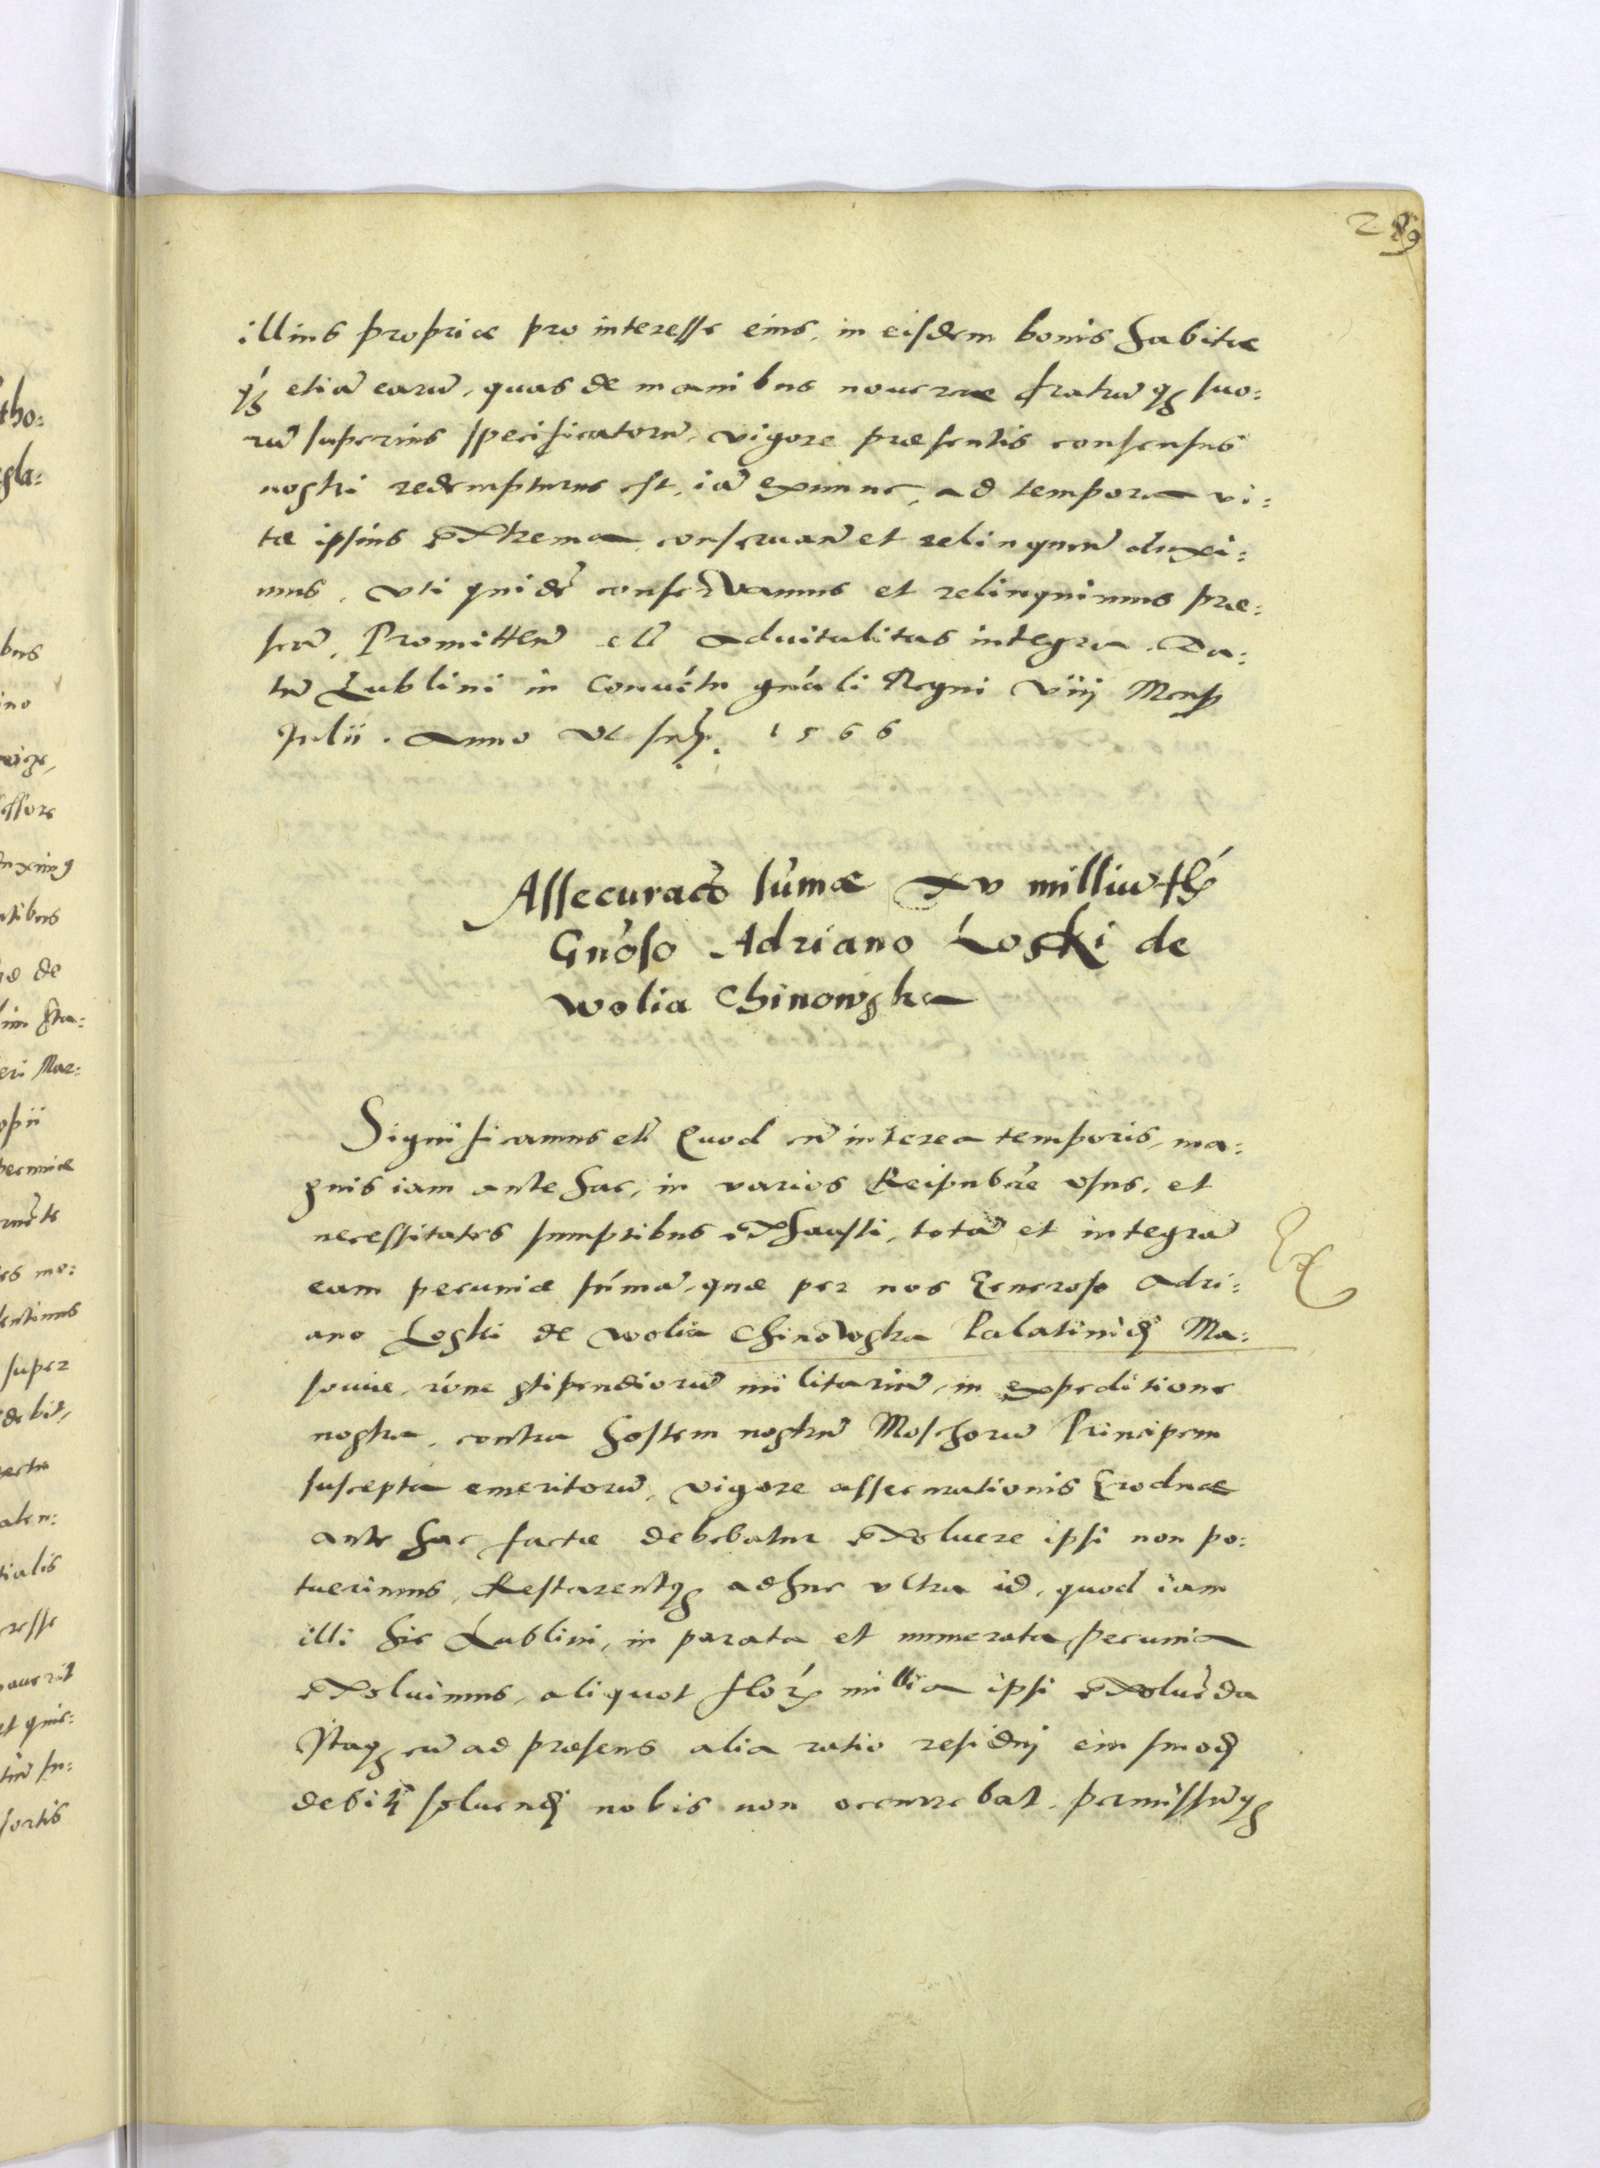 289
illius propriæ pro interesse eius, in eisdem bonis habitæ
q́ȝ etiā earū, quas de manibus novercæ fratrūqȝ suo:
rū superius specificatorū, vigore præsentis consensus
nostri redempturus est, iā exnunc, ad tempora vi:
tæ ipsius extrema, conservan̄ et relinquen̄ duxi:
mus. Uti quidē conservamus et relinquimus præ:
sen̄. Promitten̄ etc̄ advitalitas integra. Da:
tū Lublini in Convētu gn̄ali Regni viij Mensȝ
Julii. Anno ut supȝ. 1566
Assecuracō sūmæ xv milliū flȝ
Gn̄oso Adriano Łoski de
wolia Chinowska
Significamus etc̄ Quod cū interea temporis, ma:
gnis iam ante hac, in varios Reipub̄cæ usus, et
necessitates sumptibus exhausti, totā et integrā
eam pecuniæ sūmā, quæ per nos Generoso Adri:
ano Łoski de wolia Chinowska Palatinidi Ma:
soviæ, rōne stipendiorū militariū, in expeditione
nostra, contra hostem nostrū Moschorū Principem
suscepta emeritorū, vigore assecurationis Grodnæ
ante hac factæ debebatur exolvere ipsi non po:
tuerimus, Restarentqȝ adhuc ultra id, quod iam
illi hic Lublini, in parata et numerata pecunia
exolvimus, aliquot florȝ millia ipsi exolvēda
Itaqȝ cū ad præsens alia ratio residui eiusmodi
debiti solvendi nobis non occurrebat, permissūqȝ